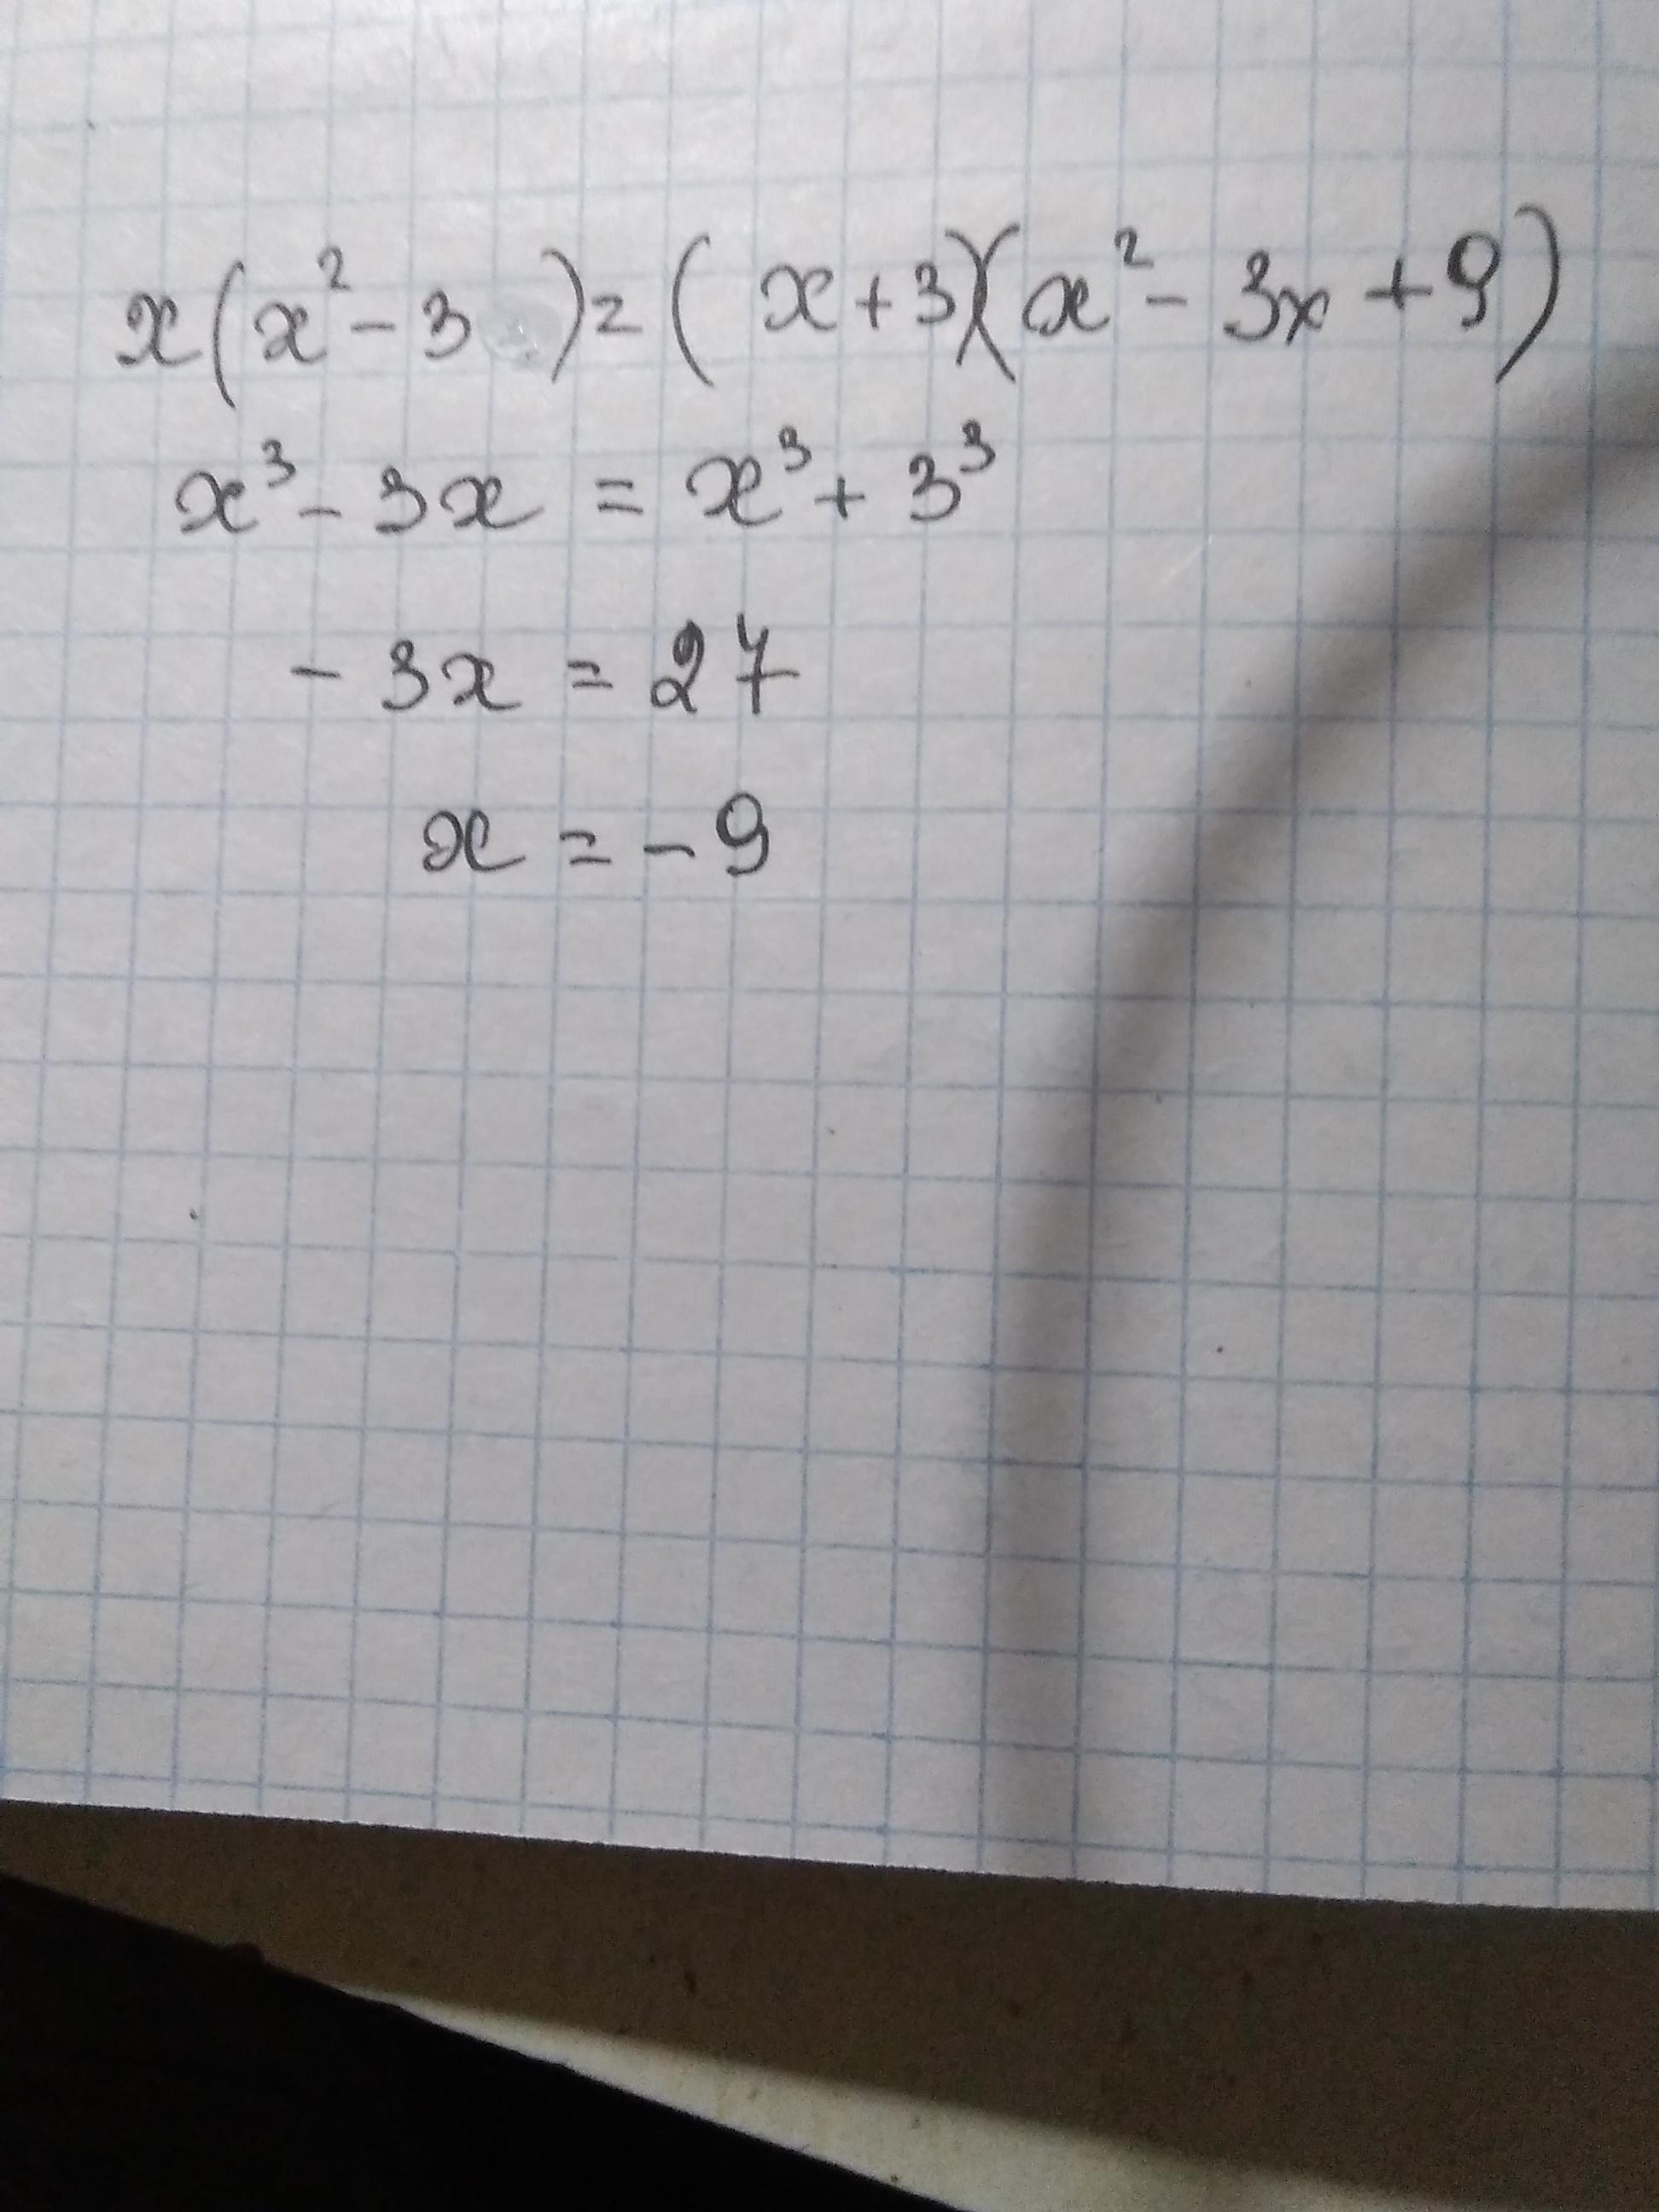 x(x²-3)=(x+3)(x²-3x+9)
x³-3x=x³+3³
-3x=27
x=-9